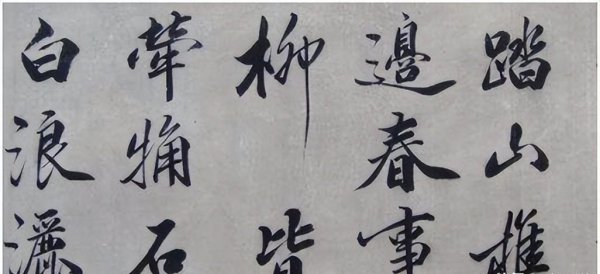 踏山樵
邊春事
柳皆
犖石
白浪灑